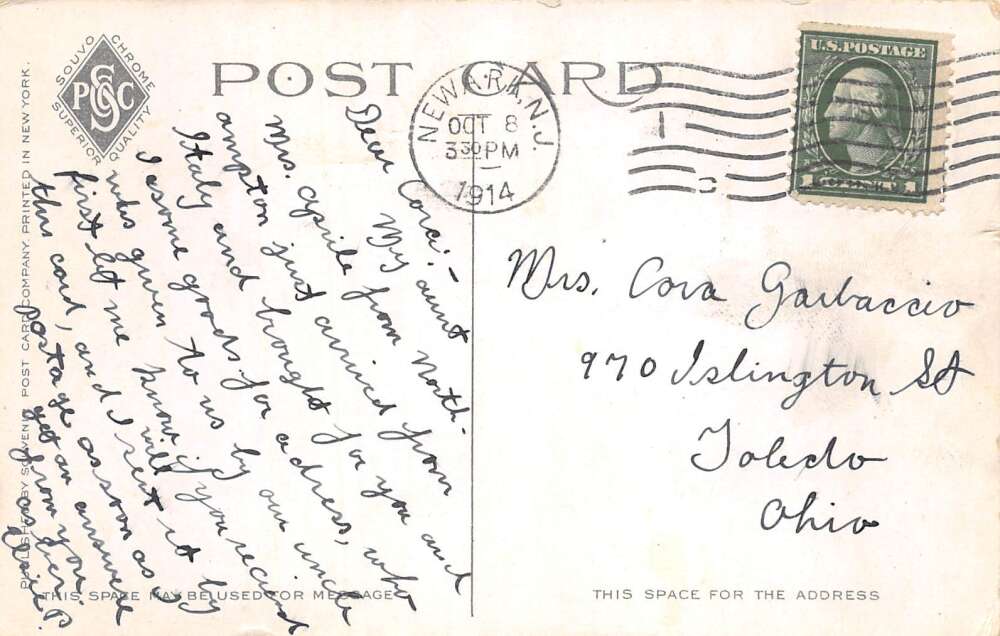 SOUVO CHROME
SUPERIOR QUALITY
SPCC
POST CARD
NEWARK, N.J.
OCT 8
3 30 PM
1914
U.S. POSTAGE
1 1
PUBLISHED BY SOUVENIR POST CARD COMPANY. PRINTED IN NEW YORK.
Dear Cora:-
My aunt
Mrs. Aprile from North-
ampton just arrived from
Italy and brought for you and
I some goods for a dress, who
was given to us by our uncle
first let me know if you receivd
this card, and I will sent it by
postage as soon as I
get an answere
from you.
as ever
Mrs. Cora Garbaccio
970 Islington St
Toledo
Ohio
THIS SPACE MAY BE USED FOR MESSAGE
THIS SPACE FOR THE ADDRESS